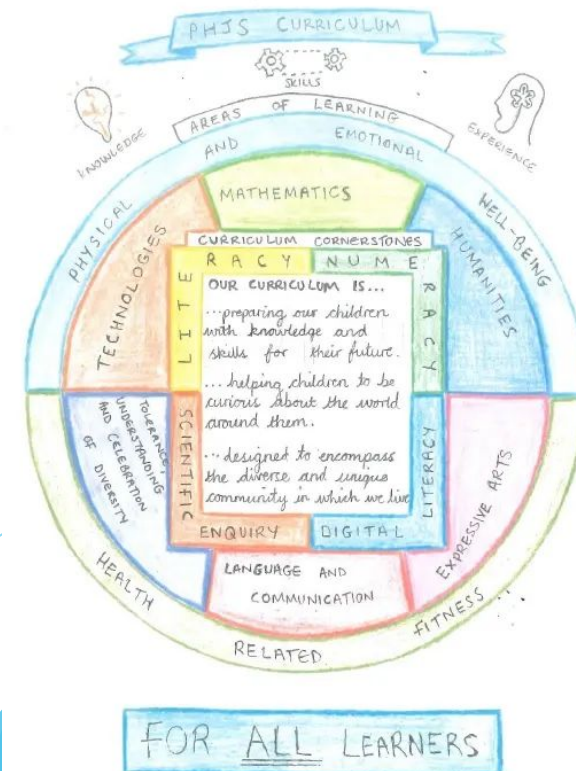 PHJS CURRICULUM
SKILLS
KNOWLEDGE
AREAS OF LEARNING
EXPERIENCE
PHYSICAL AND EMOTIONAL WELL-BEING
MATHEMATICS
TECHNOLOGIES
HUMANITIES
CURRICULUM CORNERSTONES
LITERACY
NUMERACY
OUR CURRICULUM IS...
...preparing our children
with knowledge and
skills for their future.
...helping children to be
curious about the world
around them.
...designed to encompass
the diverse and unique
community in which we live
SCIENTIFIC
ENQUIRY
DIGITAL
LITERACY
TOLERANCE,
UNDERSTANDING
AND CELEBRATION
OF DIVERSITY
EXPRESSIVE ARTS
LANGUAGE AND
COMMUNICATION
HEALTH RELATED FITNESS
FOR ALL LEARNERS